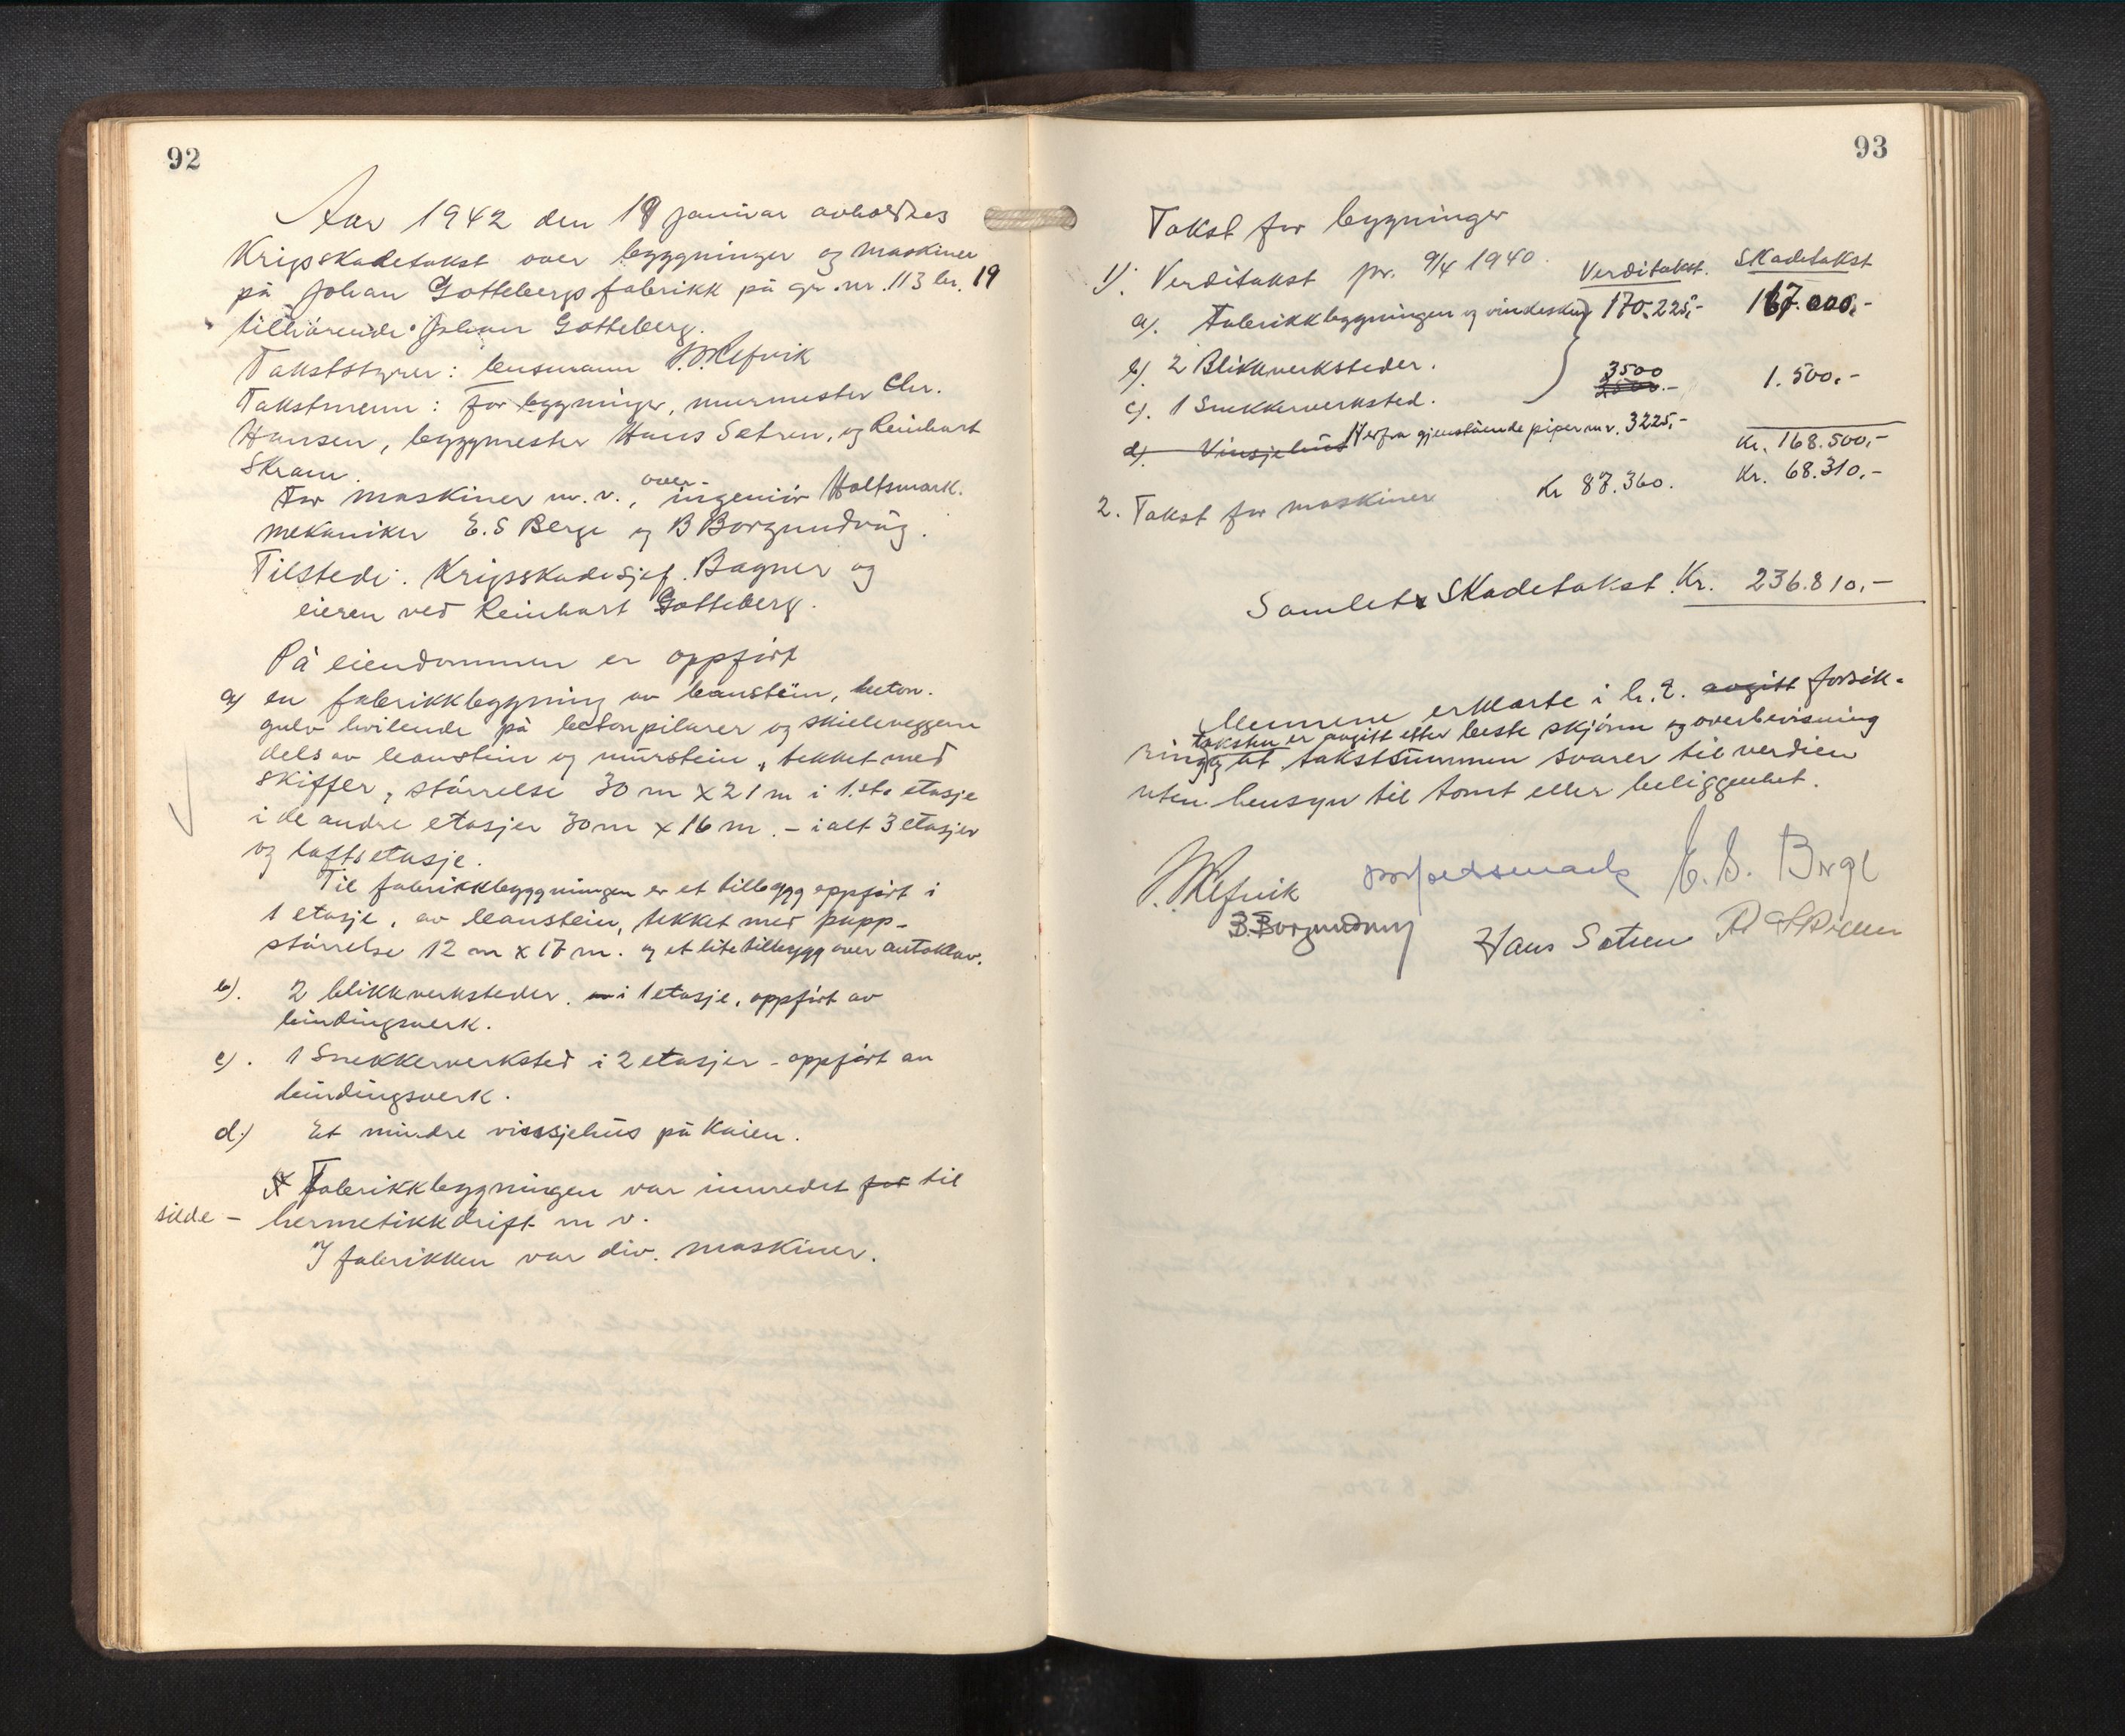 92
Aar 1942 den 19 januar avholdtes
Krigsskadetakst over bygninger og maskiner
på Johan Gottebergs fabrikk på gr.nr. 113 br. 19
tilhörende Johan Gotteberg.
Takststyrer: lensmann P. Refvik
Takstmenn: for bygninger, murmester Chr.
Hansen, byggmester Hans Sætren, og Reinhart
Skram.
For maskiner m.v., over-ingeniör Holtsmark.
mekaniker E.S Berge og B Borgundvåg.
Tilstede: Krigsskadesjef. Bagner og
eieren ved Reinhart Gotteberg.
På eiendommen er oppfört
a) en fabrikkbygning av leanstein, beton.
gulv hvilende på betonpilarer og skilleveggene
dels av leanstein og murstein, tekket med
skiffer, störrelse 30 m x 21 m i 1.ste etasje
i de andre etasjer 30 m x 16 m. - ialt 3 etasjer
og loftsetasje.
Til fabrikkbyggningen er et tilbygg oppfört i
1 etasje, av leanstein, tekket med papp-
störrelse 12 m x 17 m. og et lite tilbygg over autoklav.
b). 2 blikkverksteder. i 1 etasje, oppfört av
bindingsverk.
c). 1 Snekkerverksted i 2 etasjer - oppfört av
bindingsverk.
d.) Et mindre vinsjehus på Kaien.
Fabrikkbygningen var innredet for til
silde - hermetikkdrift m v.
I fabrikken var div. maskiner.
93
Takst for bygninger
1). Verditakst pr. 9/4 1940. Verditakst. Skadetakst
a). Fabrikkbygningen og vindeskur 170.225,- 167.000,-
b). 2 Blikkverksteder. 3500 1.500.-
c). 1 Snekkerverksted.
d). Vinsjehus Herfra gjenstående piper m.v. 3225,-
Kr. 168.500,-
2. Takst for maskiner Kr 87.360. Kr. 68.310,-
Samlet Skadetakst Kr. 236.810,-
Mennene erklærte i h.t. avgitt forsik-
taksten er avgitt etter beste skjönn og overbevisning
ring og at takstsummen svarer til verdien
uten hensyn til tomt eller beliggenhet.
P. Refvik E. S. Berge
B. Borgundvåg Hans Sætren R Skram